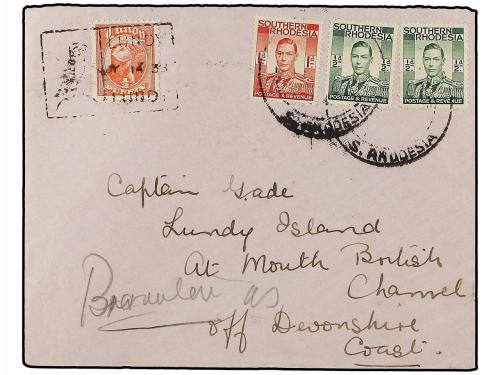 LUNDY
Lundy
SOUTHERN RHODESIA
1d
POSTAGE & REVENUE
SOUTHERN RHODESIA
½d ½d
POSTAGE & REVENUE
SOUTHERN RHODESIA
½d ½d
POSTAGE & REVENUE
S. RHODESIA
S. RHODESIA
Captain Gade
Lundy Island
At Mouth British
Channel
off Devonshire
Coast.